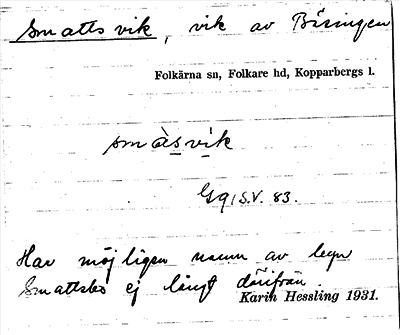 Smatts vik, vik av Bäsingen
Folkärna sn, Folkare hd, Kopparbergs l.
smàsvik
Gg/S.V. 83.
Har möjligen namn av byn
Smattsbo ej långt därifrån.
Karin Hessling 1931.